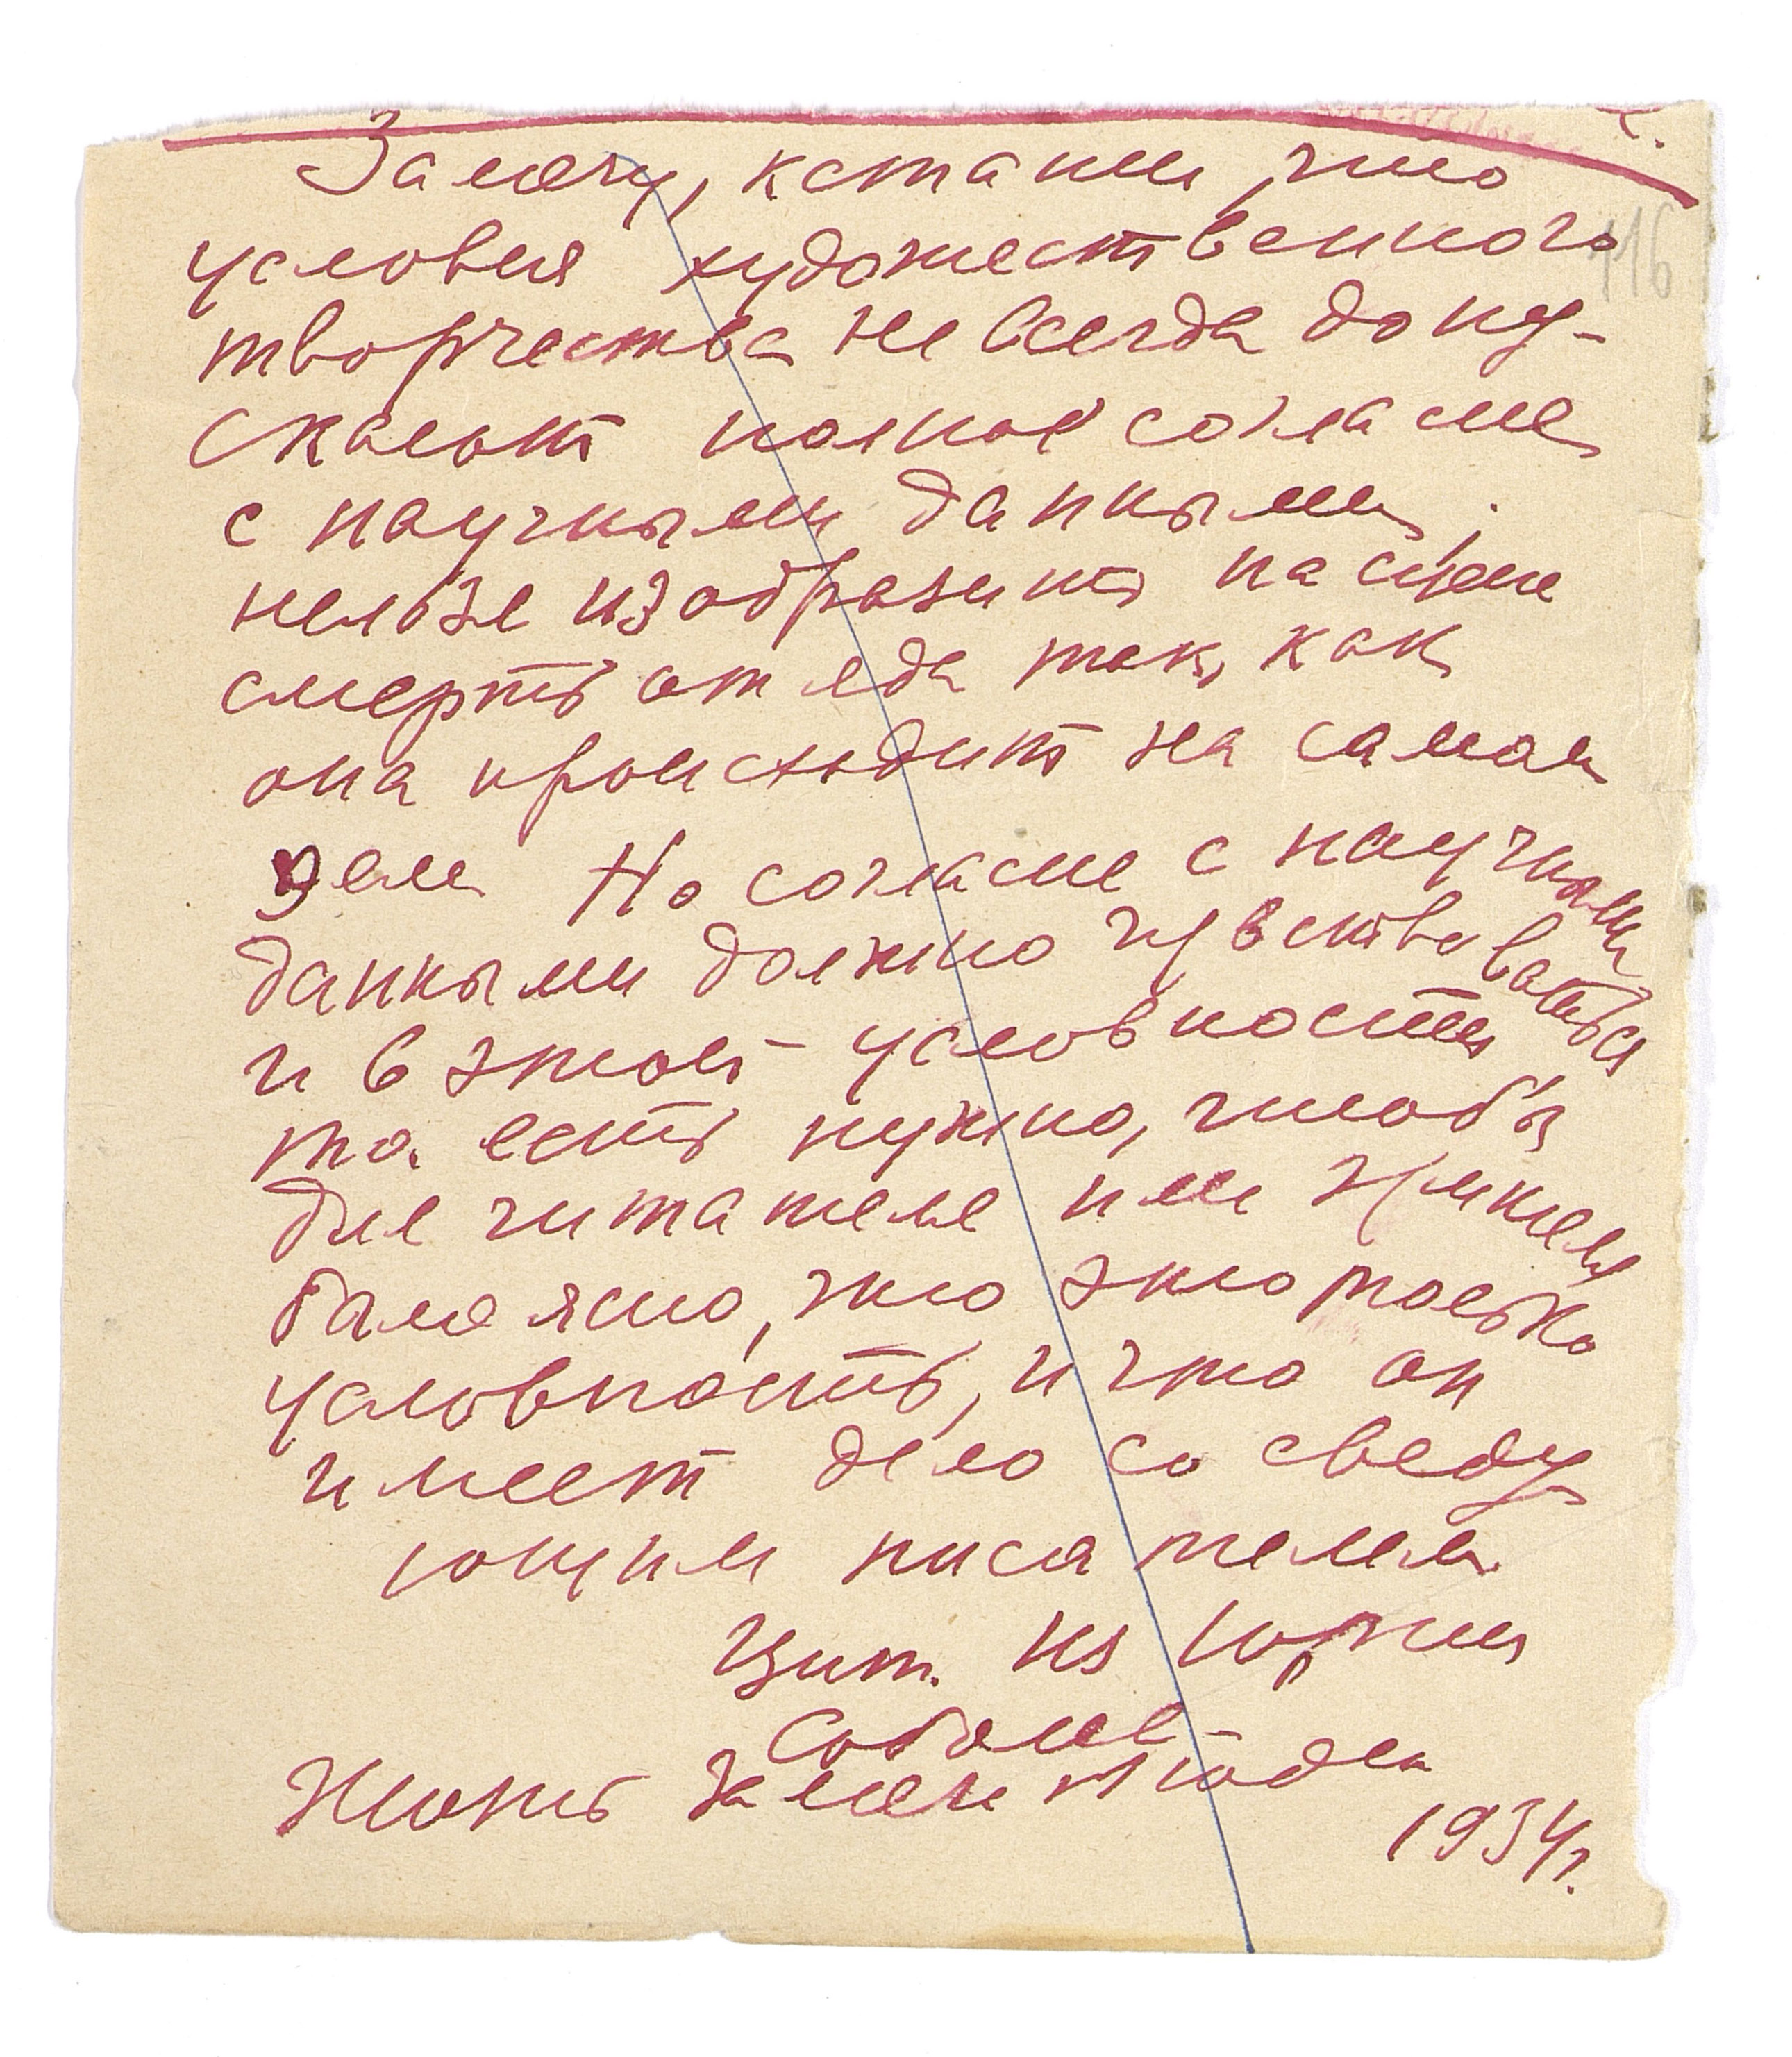 116
Замечу, кстати, что
условия художественного
творчества не всегда допу-
скают полное согласие
с научными данными;
нельзя изобразить на сцене
смерть от яда так, как
она происходит на самом
деле. Но согласие с научными
данными должно чувствоваться
и в этой условности
то есть нужно, чтобы
для читателя или зрителя
было ясно, что это только
условность, и что он
имеет дело со сведу
ющим писателем
Цит. из Юрия
Соболева
Жизнь замеч людей
1934г.